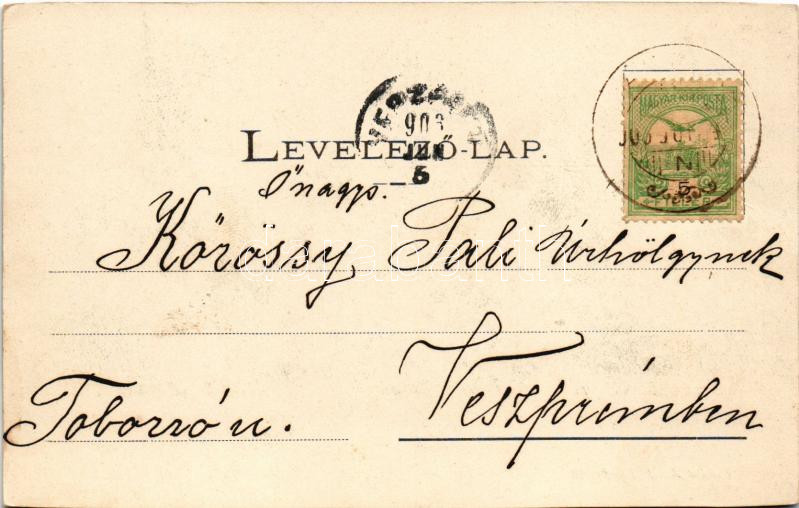 LEVELEZŐ-LAP.
903
JUN
5
MAGYAR KIR. POSTA
5
Őnagys.
Kőrössy Pali Úrhölgynek
Veszprémben
Toborzó u.